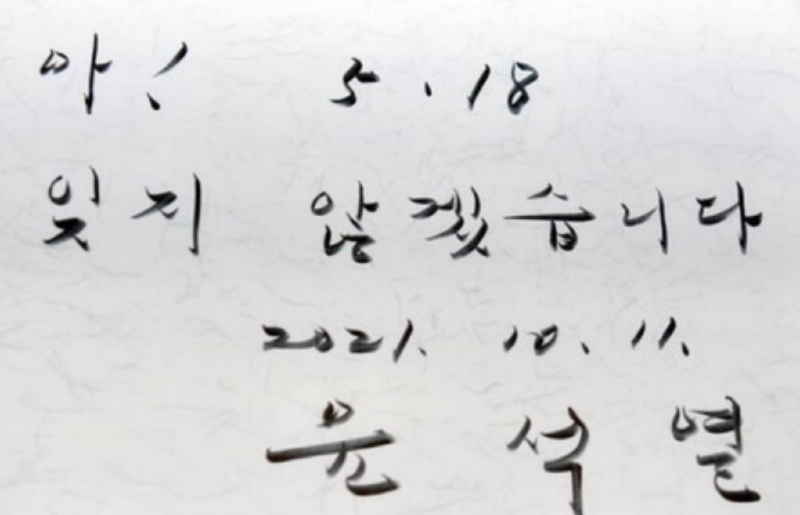 아! 5.18
잊지 않겠습니다
2021. 10. 11.
윤석열